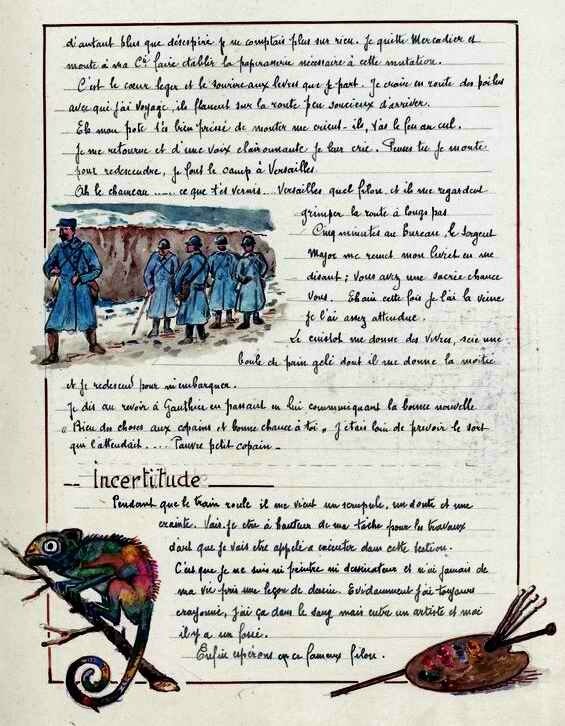 d'autant plus que désespéré je ne comptais plus sur rien. Je quitte Mercadier et
monte à ma Cie faire établir la paperasserie nécessaire à cette mutation.
C'est le cœur leger et le sourire aux levres que je part. Je croise en route des poilus
avec qui j'ai voyagé, ils flanent sur la route peu soucieux d'arriver.
Eh mon pote t'es bien pressé de monter me crient-ils, t'as le feu au cul.
Je me retourne et d'une voix claironnante je leur crie. Penses tu je monte
pour redescendre, je fous le camp à Versailles
Ah le chameau ..... ce que t'es vernis... Versailles quel filon, et ils me regardent
grimper la route à longs pas
Cinq minutes au bureau, le sergent
Major me remet mon livret en me
disant; vous avez une sacrée chance
vous. Eh oui cette fois je l'ai la veine
je l'ai assez attendue.
Le cuistot me donne des vivres, scie une
boule de pain gelé dont il me donne la moitié
et je redescend pour m'embarquer.
Je dis au revoir à Gauthier en passant en lui communiquant la bonne nouvelle
« Bien des choses aux copains et bonne chance à toi » J'étais loin de prevoir le sort
qui l'attendait ..... Pauvre petit copain _
-- incertitude
Pendant que le train roule il me vient un scrupule, un doute et une
crainte. Vais-je etre à hauteur de ma tâche pour les travaux
d'art que je vais etre appelé a executer dans cette section.
C'est que je ne suis ni peintre ni dessinateur et n'ai jamais de
ma vie pris une leçon de dessin. Evidemment j'ai toujours
crayonné, j'ai ça dans le sang mais entre un artiste et moi
il y a un fossé.
Enfin espérons en ce fameux filon.